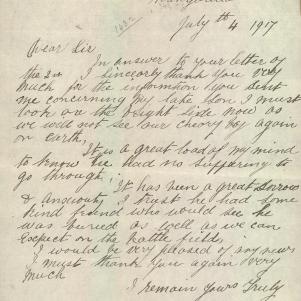 July 4th 1917
Dear Sir
In answer to your letter of
the 2nd I sincerely thank you very
much for the information you sent
me concerning my late Son I must
look on the bright side now as
we will not see our cheery boy again
on earth,
It is a great load of my mind
to know he had no suffering to
go through. It has been a great sorrow
& anxiety I trust he had some
kind friend who would see he
was buried as well as we can
Expect on the battle field,
I would be very pleased of any news
I must thank you again very
much
I remain Yours Truly